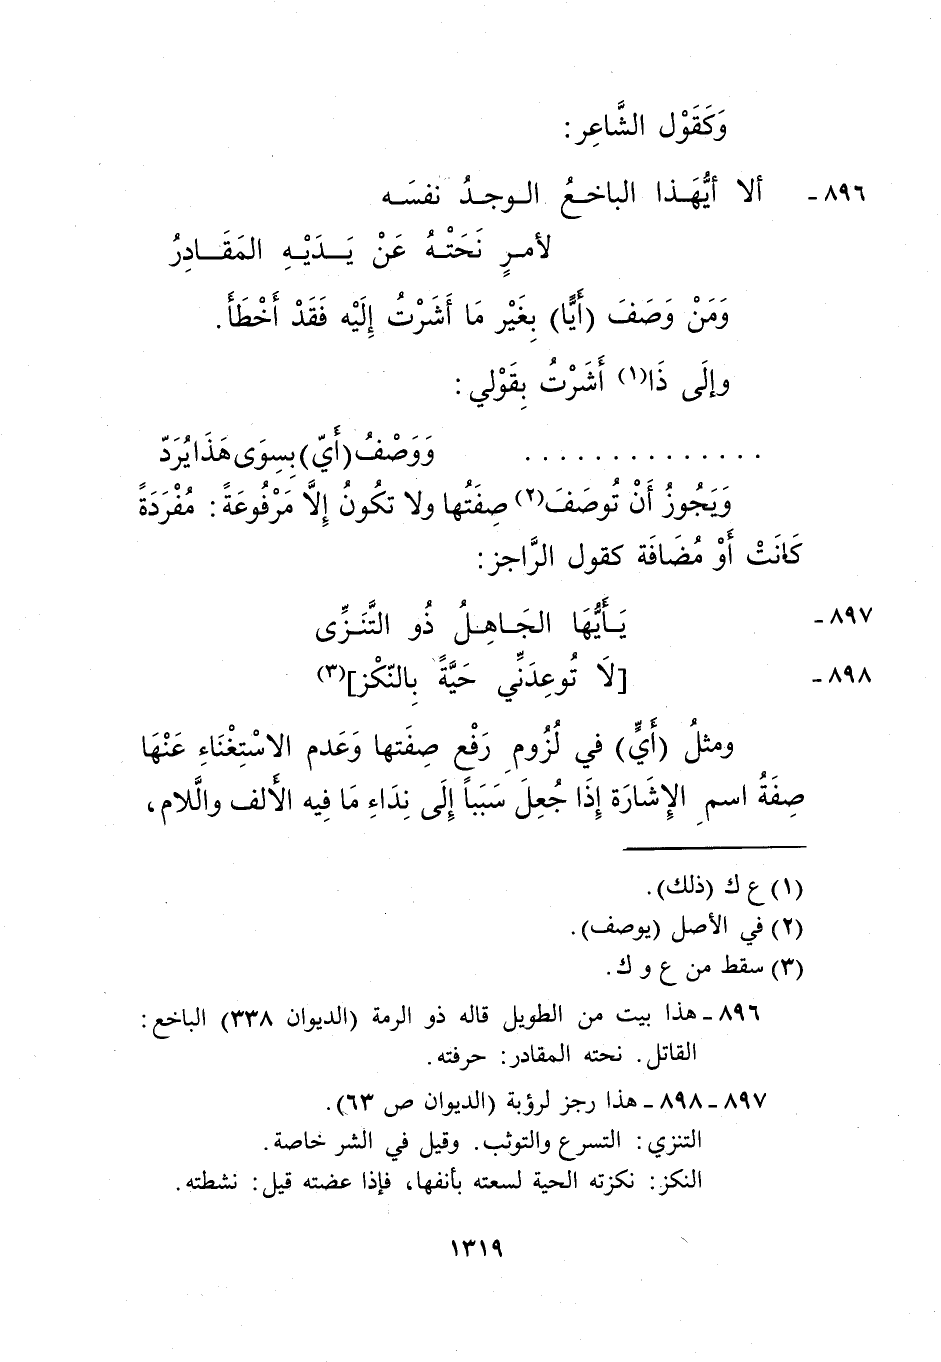 وَكَقَوْل الشَّاعِر:
٨٩٦ - ألا أيُّهَـذا الباخـعُ الـوجـدُ نفسَـه
لأمـرٍ نَحَتْـهُ عَنْ يَـدَيْـهِ المَقَـادِرُ
وَمَنْ وَصَفَ (أَيًّا) بِغَيْر مَا أَشَرْتُ إِلَيْه فَقَدْ أَخْطَأَ.
وإلَى ذَا(١) أَشَرْتُ بِقَوْلي:
. . . . . . . . . . . . . . وَوَصْفُ (أَيّ) بِسِوَى هَذَا يُرَدّ
وَيَجُوزُ أَنْ تُوصَفَ(٢) صِفَتُها ولا تكُونُ إِلاَّ مَرْفُوعَةً: مُفْرَدَةً
كَانَتْ أَوْ مُضَافَة كقول الرَّاجز:
٨٩٧ - يَـأَيُّهَا الجَـاهِـلُ ذُو التَّنَـزِّى
٨٩٨ - [لَا تُوعِدَنِّي حَيَّةً بِالنّكْز](٣)
ومثلُ (أَيٍّ) في لُزُومِ رَفْع صِفَتها وَعَدم الاسْتِغْنَاءِ عَنْهَا
صِفَةُ اسمِ الإِشَارَة إِذَا جُعِلَ سَبَباً إِلَى نِدَاءِ مَا فيه الأَلف والَّلام،
(١) ع ك (ذلك).
(٢) في الأصل (يوصف).
(٣) سقط من ع و ك.
٨٩٦ - هذا بيت من الطويل قاله ذو الرمة (الديوان ٣٣٨) الباخع:
القاتل. نحته المقادر: حرفته.
٨٩٧ - ٨٩٨ - هذا رجز لرؤبة (الديوان ص ٦٣).
التنزي: التسرع والتوثب. وقيل في الشر خاصة.
النكز: نكزته الحية لسعته بأنفها، فإذا عضته قيل: نشطته.
١٣١٩